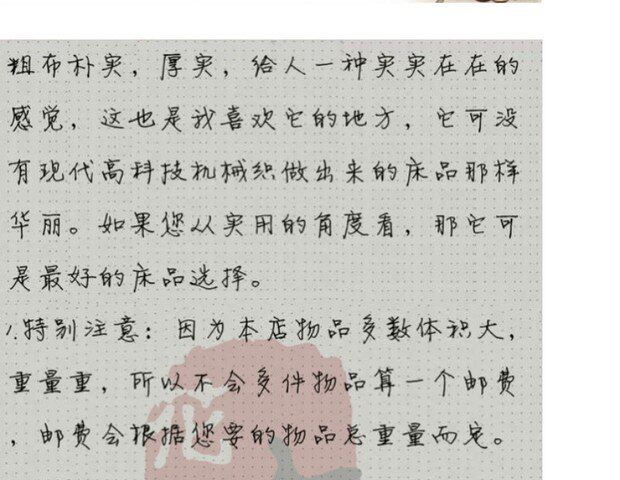 粗布朴实，厚实，给人一种实实在在的
感觉，这也是我喜欢它的地方，它可没
有现代高科技机械织做出来的床品那样
华丽。如果您从实用的角度看，那它可
是最好的床品选择。
1.特别注意：因为本店物品多数体积大，
重量重，所以不会多件物品算一个邮费
，邮费会根据您要的物品总重量而定。